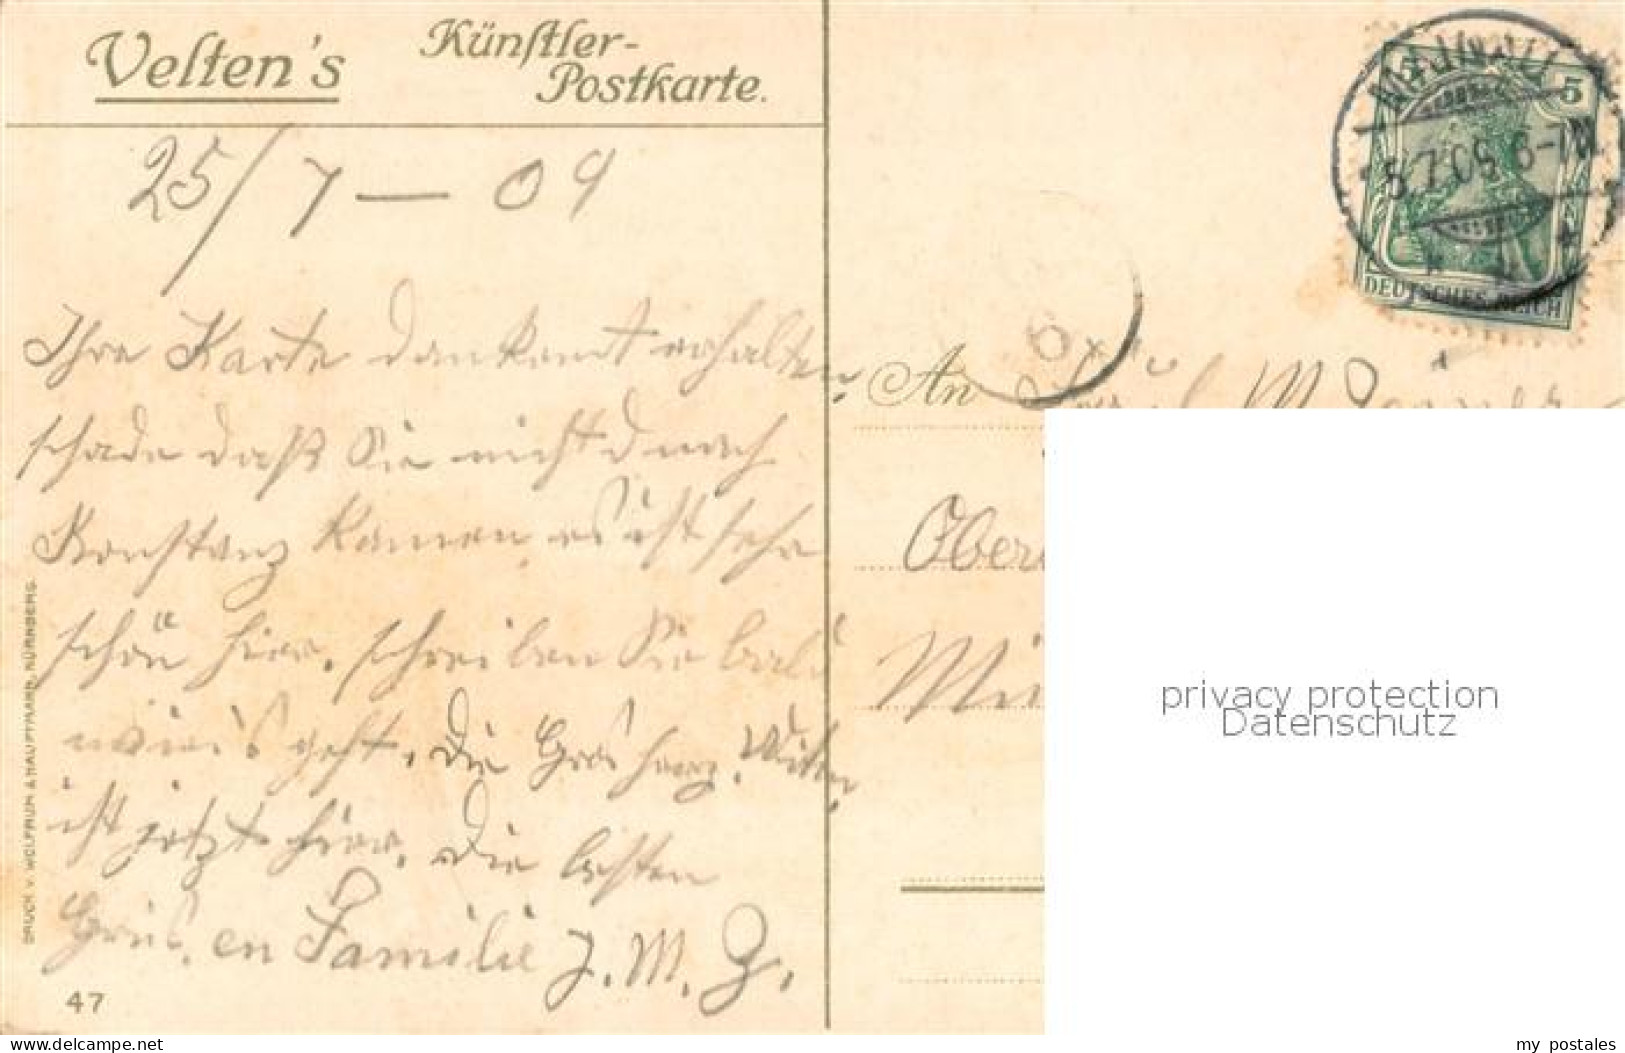 Velten's
Künstler-
Postkarte.
25/7 — 09
Ihre Karte dankend erhalten,
schade daß Sie nicht nach
Konstanz kamen, es ist sehr
schön hier. schreiben Sie bald
wie's geht. Die Gros herz. Witwe
ist jetzt hier. Die besten
Grüs. en Familie J. M. Z.
47
DRUCK V. WOLFRUM & HAUPTMANN, NÜRNBERG.
MAINAU
5
DEUTSCHES REICH
An
Ober
Mü
privacy protection
Datenschutz
www.delcampe.net
my_postales